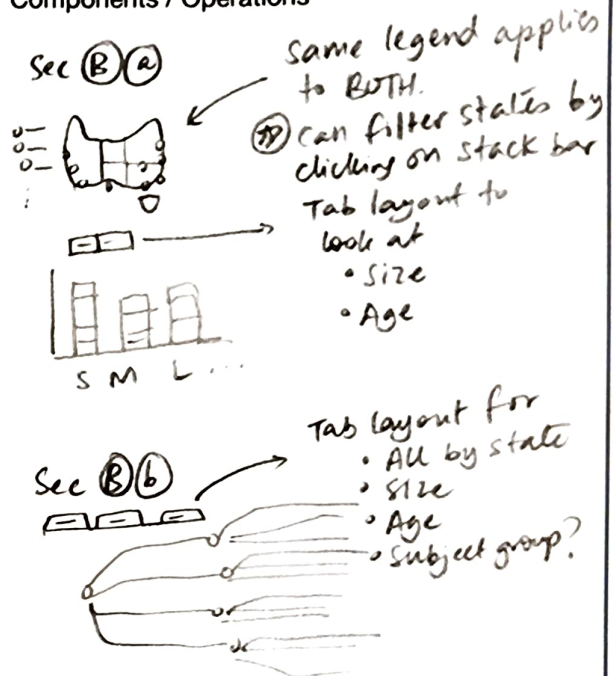 Components / Operations
Sec B a
Same legend applies
to BOTH.
can filter states by
clicking on stack bar
Tab layout to
look at
• Size
• Age
S M L ...
Sec B b
Tab layout for
• All by state
• Size
• Age
• Subject group?